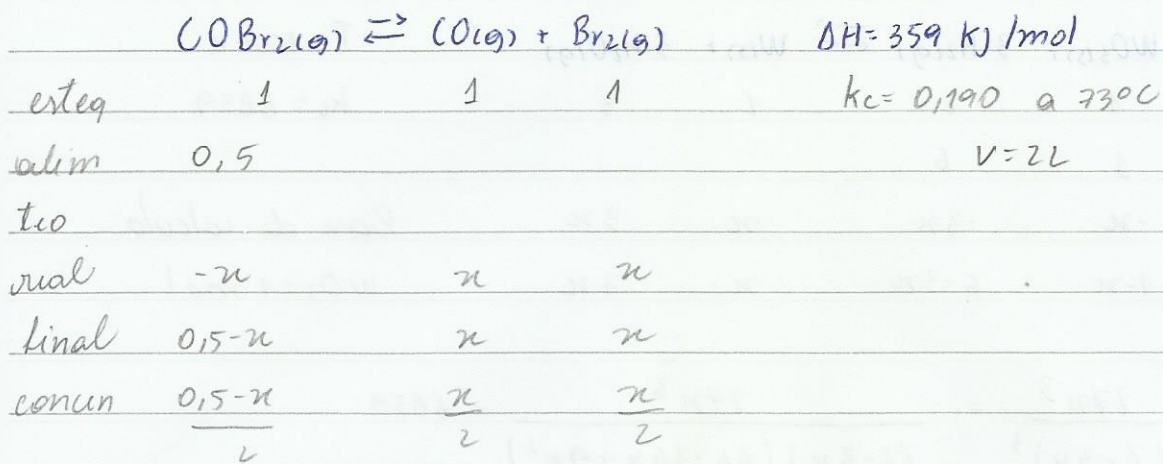 COBr2(g) ⇌ CO(g) + Br2(g) ΔH = 359 KJ/mol
esteq 1 1 1 kc = 0,190 a 73°C
alim 0,5 V = 2L
teo
real -x x x
final 0,5-x x x
concen 0,5-x/2 x/2 x/2